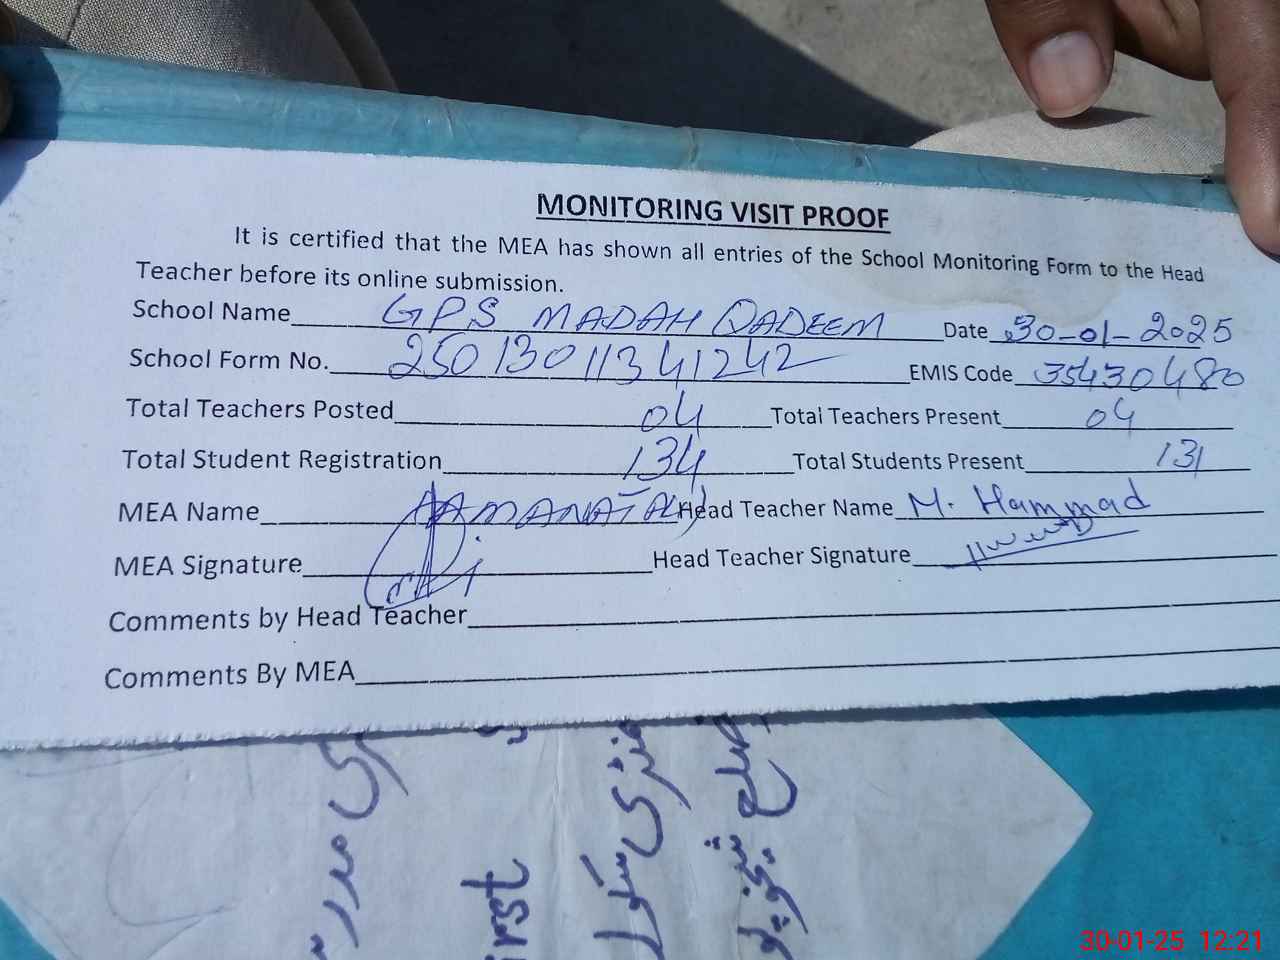 MONITORING VISIT PROOF
It is certified that the MEA has shown all entries of the School Monitoring Form to the Head
Teacher before its online submission.
School Name GPS MADAH QADEEM Date 30-01-2025
School Form No. 25013011341242 EMIS Code 35430480
Total Teachers Posted 04 Total Teachers Present 04
Total Student Registration 134 Total Students Present 131
MEA Name AMANAT ALI Head Teacher Name M. Hammad
MEA Signature Head Teacher Signature
Comments by Head Teacher
Comments By MEA
30-01-25 12:21